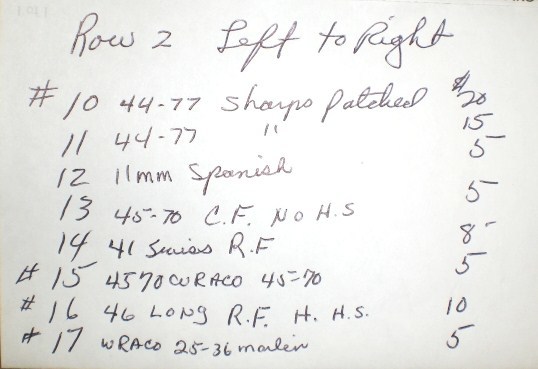 Row 2 Left to Right
# 10 44-77 Sharps Patched $20
11 44-77 " 15
12 11mm Spanish 5
13 45-70 C.F. No H.S 5
14 41 Swiss R.F 8-
# 15 4570 WRACO 45-70 5
# 16 46 LONG R.F. H. H.S. 10
# 17 WRACO 25-36 marlin 5